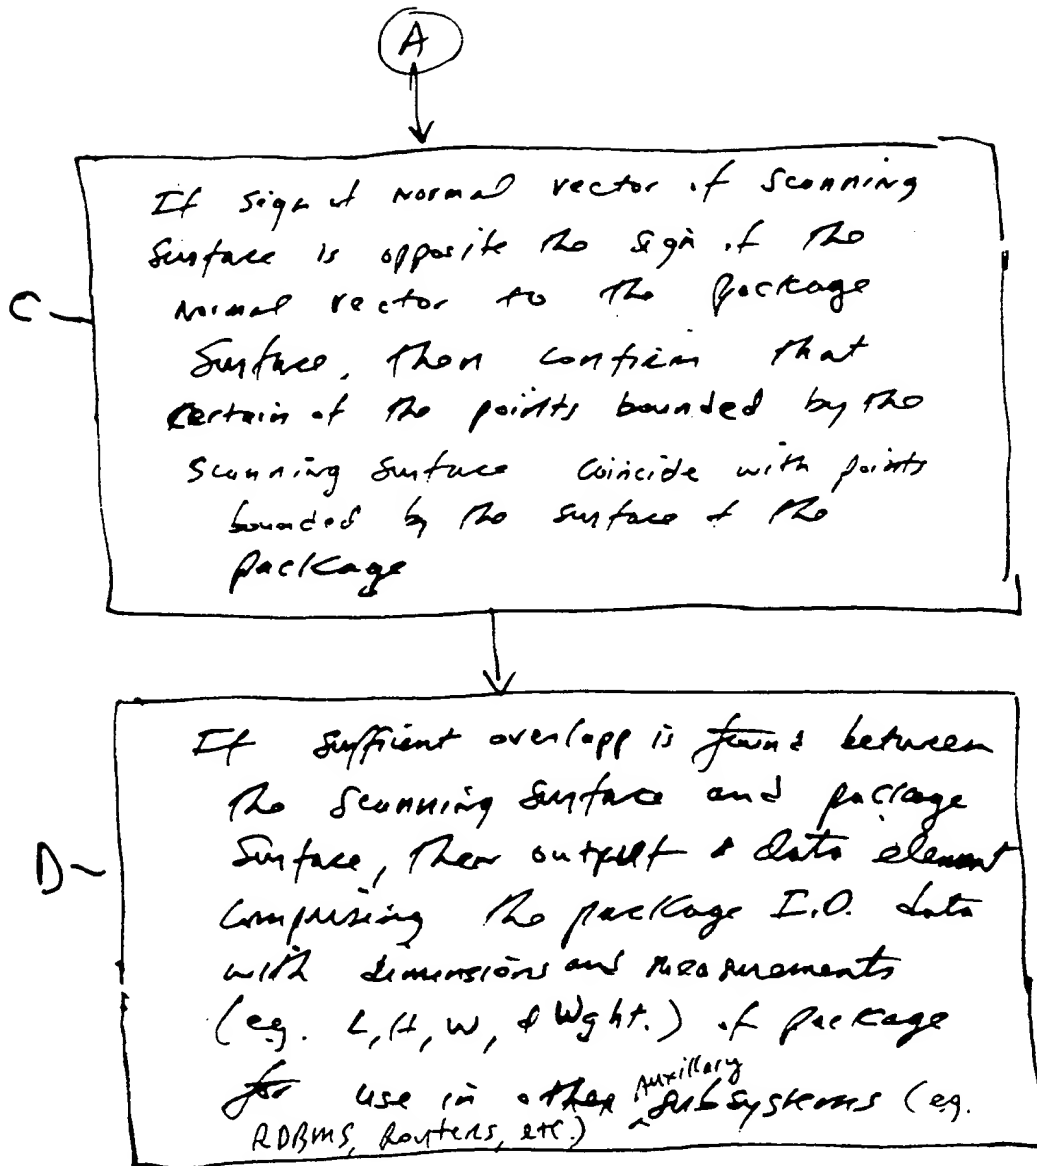 A
If sign of Normal vector of scanning
Surface is opposite the sign of the
Normal vector to the package
Surface, then confirm that
certain of the points bounded by the
scanning surface coincide with points
bounded by the surface of the
package
C
If suffient overlapp is found between
the scanning surface and package
Surface, then output a data element
comprising the package I.D. data
with dimensions and measurements
(e.g. L, H, W, & Wght.) of package
for use in other Auxillary subsystems (e.g.
RDBMS, Routers, etc.)
D